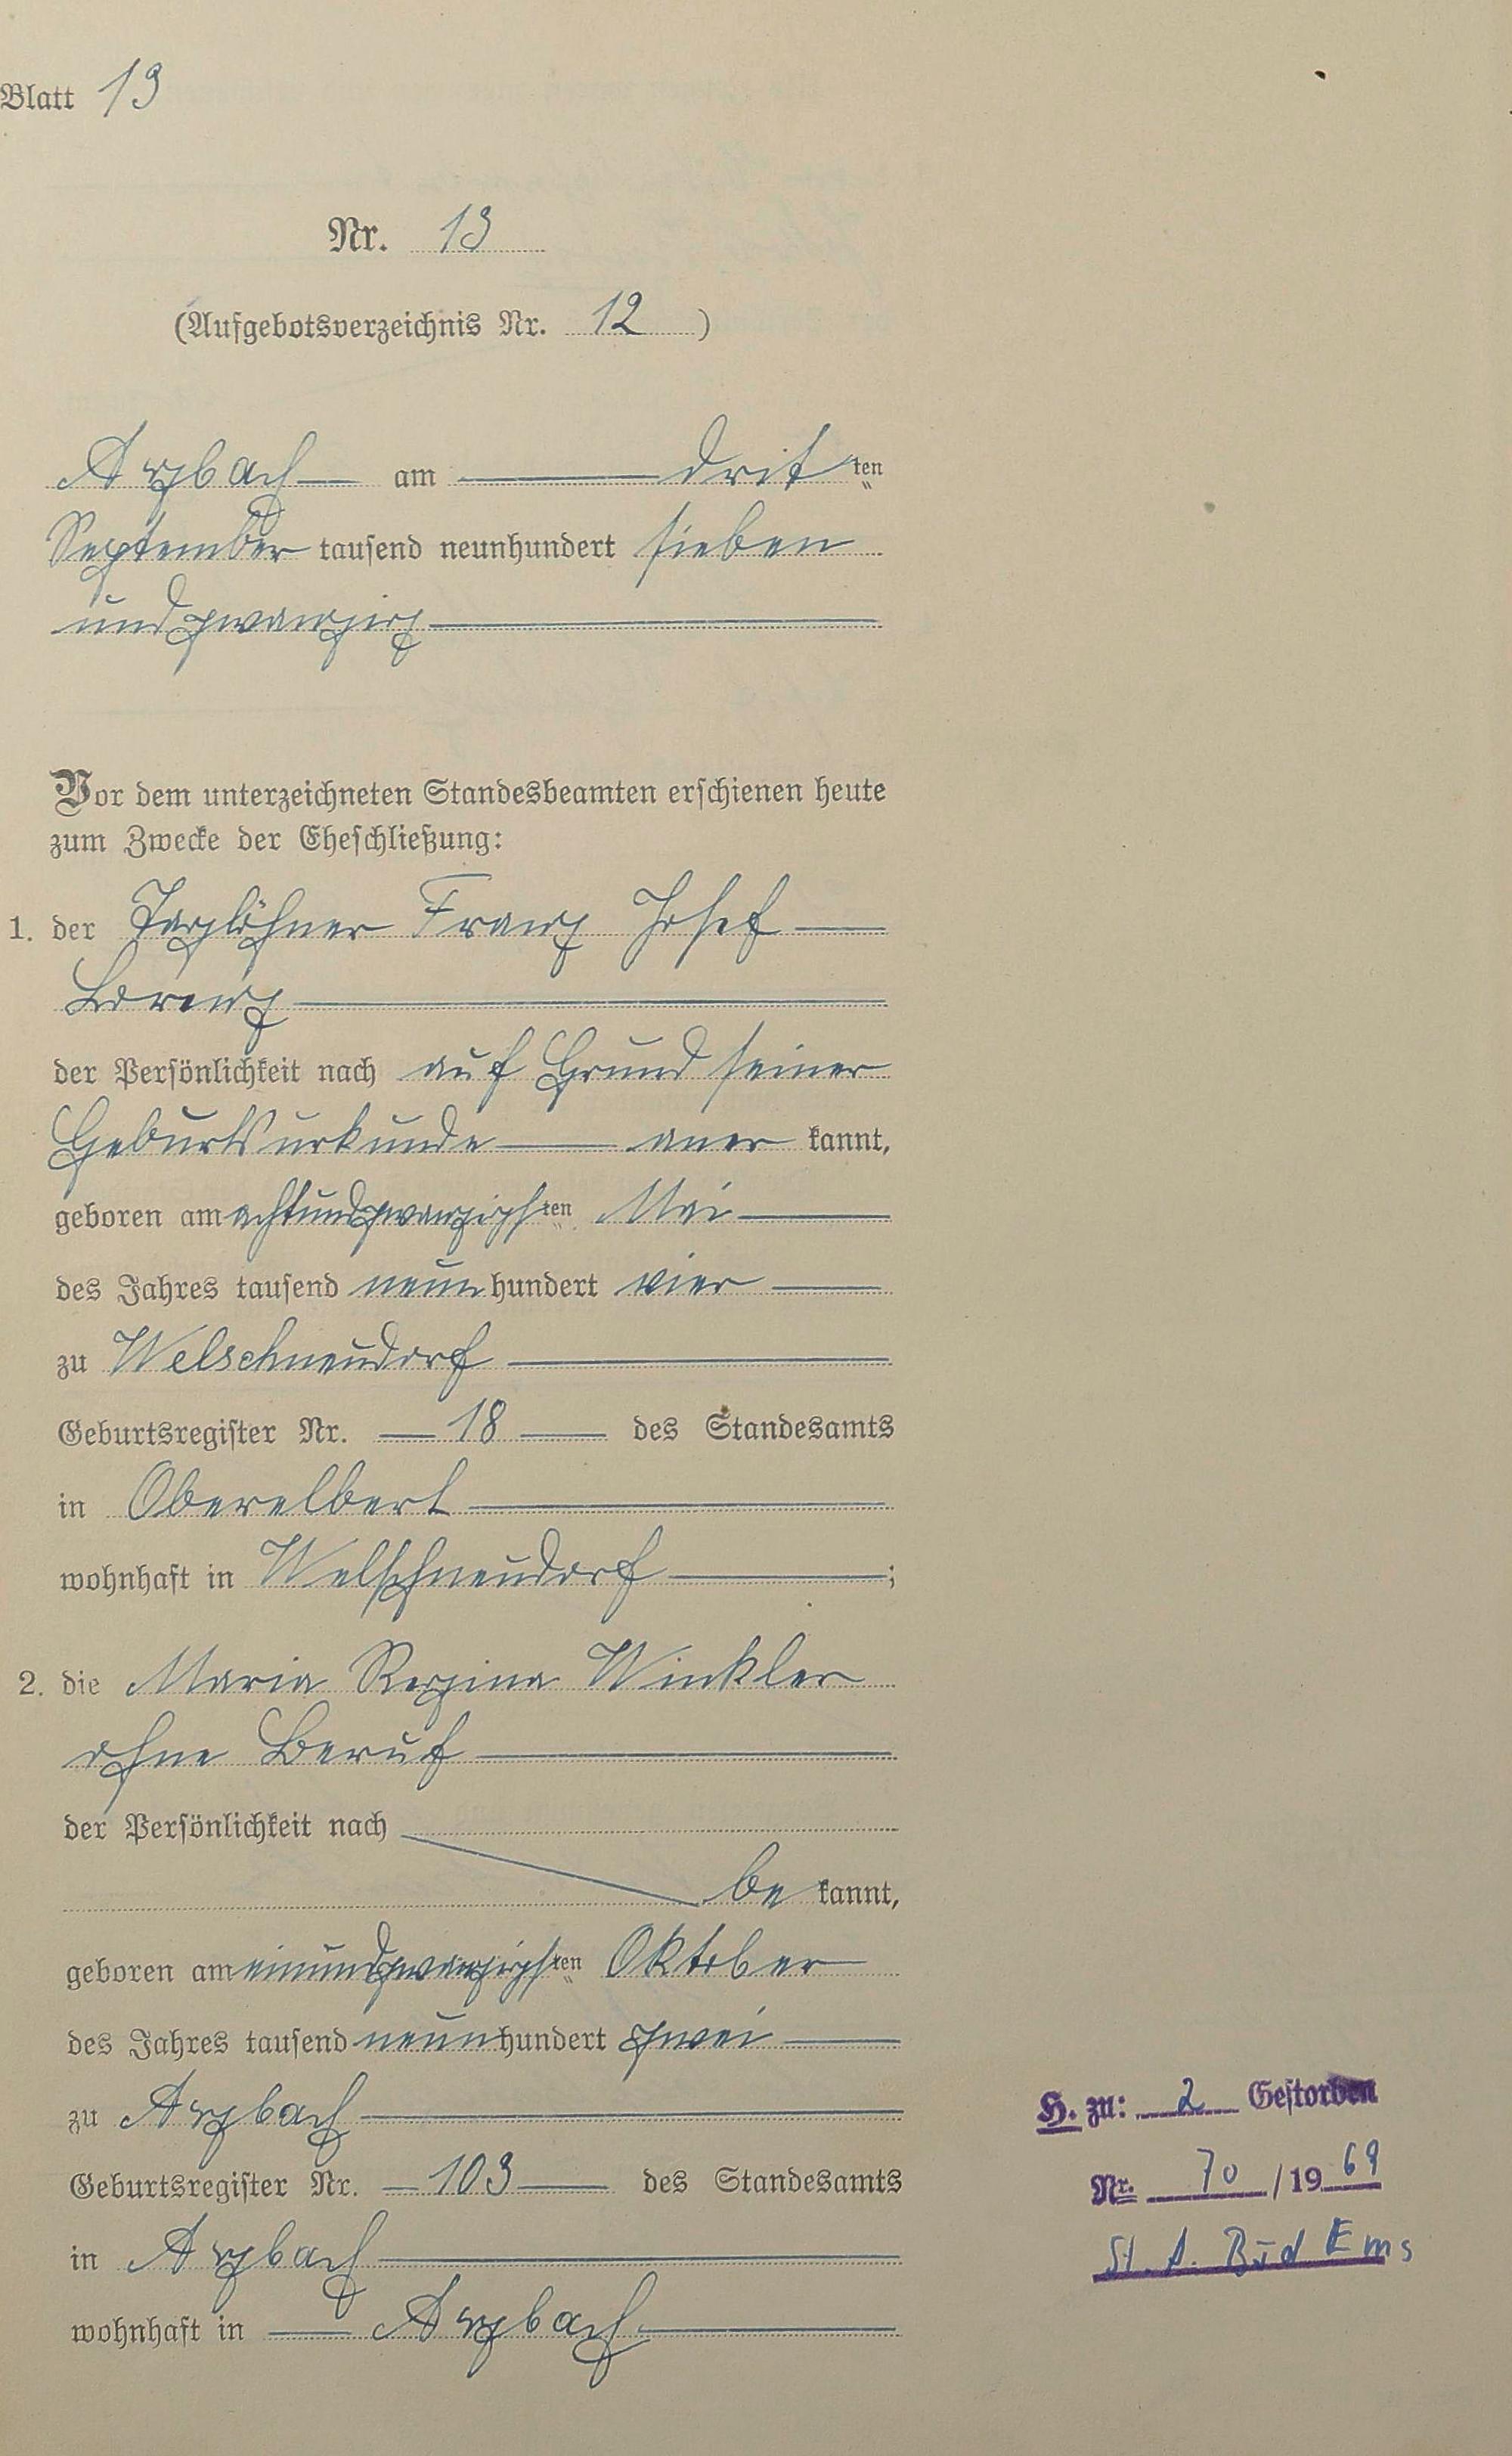 Blatt 13
Nr. 13
(Aufgebotsverzeichnis Nr. 12 )
Arzbach am drit ten
September tausend neunhundert sieben
undzwanzig
Vor dem unterzeichneten Standesbeamten erschienen heute
zum Zwecke der Eheschließung:
1. der Taglöhner Franz Josef
Lorenz
der Persönlichkeit nach auf Grund seiner
Geburtsurkunde aner kannt,
geboren am achtundzwanzigsten Mai
des Jahres tausend neunhundert vier
zu Welschneudorf
Geburtsregister Nr. 18 des Standesamts
in Oberelbert
wohnhaft in Welschneudorf ;
2. die Maria Regina Winkler
ohne Beruf
der Persönlichkeit nach
be kannt,
geboren am einundzwanzigsten Oktober
des Jahres tausend neunhundert zwei
zu Arzbach
Geburtsregister Nr. 103 des Standesamts
in Arzbach
wohnhaft in Arzbach
H. zu: 2 Gestorben
Nr. 70 /1969
St. A. Bad Ems